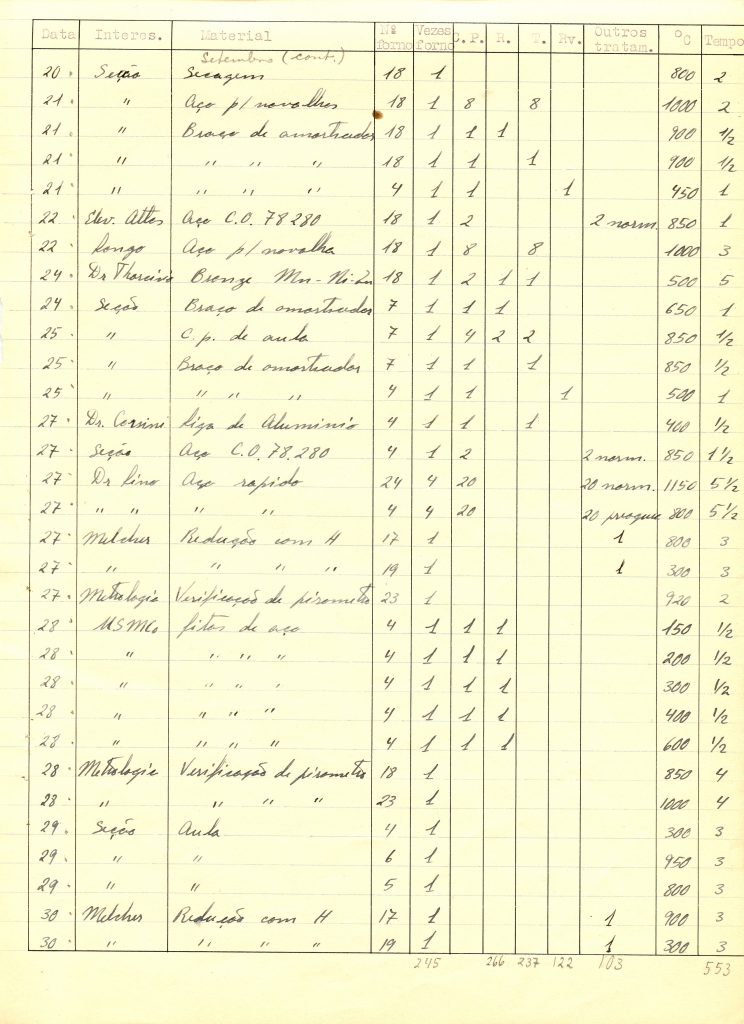 Data Interes. Material Nº forno Vezes forno C.P. R. T. Rv. Outros tratam. ºC Tempo
Setembro (cont.)
20 Seção Secagem 18 1 800 2
21 " Aço p/ novalhas 18 1 8 8 1000 2
21 " Braço de amortiador 18 1 1 1 900 1/2
21 " " " " 18 1 1 1 900 1/2
21 " " " " 4 1 1 1 450 1
22 Elev. Atlas Aço C.O. 78280 18 1 2 2 norm. 850 1
22 Longo Aço p/ novalha 18 1 8 8 1000 3
24 Dr Bronze Mn-Ni-Zn 18 1 2 1 1 500 5
24 Seção Braço de amortiador 7 1 1 1 650 1
25 " C.p. de aula 7 1 4 2 2 850 1/2
25 " Braço de amortiador 7 1 1 1 850 1/2
25 " " " " 4 1 1 1 500 1
27 Dr. Corsini Liga de Aluminio 4 1 1 1 400 1/2
27 Seção Aço C.O. 78.280 4 1 2 2 norm. 850 1 1/2
27 Dr Lino Aço rapido 24 4 20 20 norm. 1150 5 1/2
27 " " " " 4 4 20 20 800 5 1/2
27 Melcher Redução com H 17 1 1 800 3
27 " " " " 19 1 1 300 3
27 Metrologia Verificação de pirometro 23 1 920 2
28 USMCo fitas de aço 4 1 1 1 150 1/2
28 " " " " 4 1 1 1 200 1/2
28 " " " " 4 1 1 1 300 1/2
28 " " " " 4 1 1 1 400 1/2
28 " " " " 4 1 1 1 600 1/2
28 Metrologia Verificação de pirometro 18 1 850 4
28 " " " " 23 1 1000 4
29 Seção Aula 4 1 300 3
29 " " 6 1 950 3
29 " " 5 1 800 3
30 Melcher Redução com H 17 1 1 900 3
30 " " " " 19 1 1 300 3
245 266 237 122 103 553